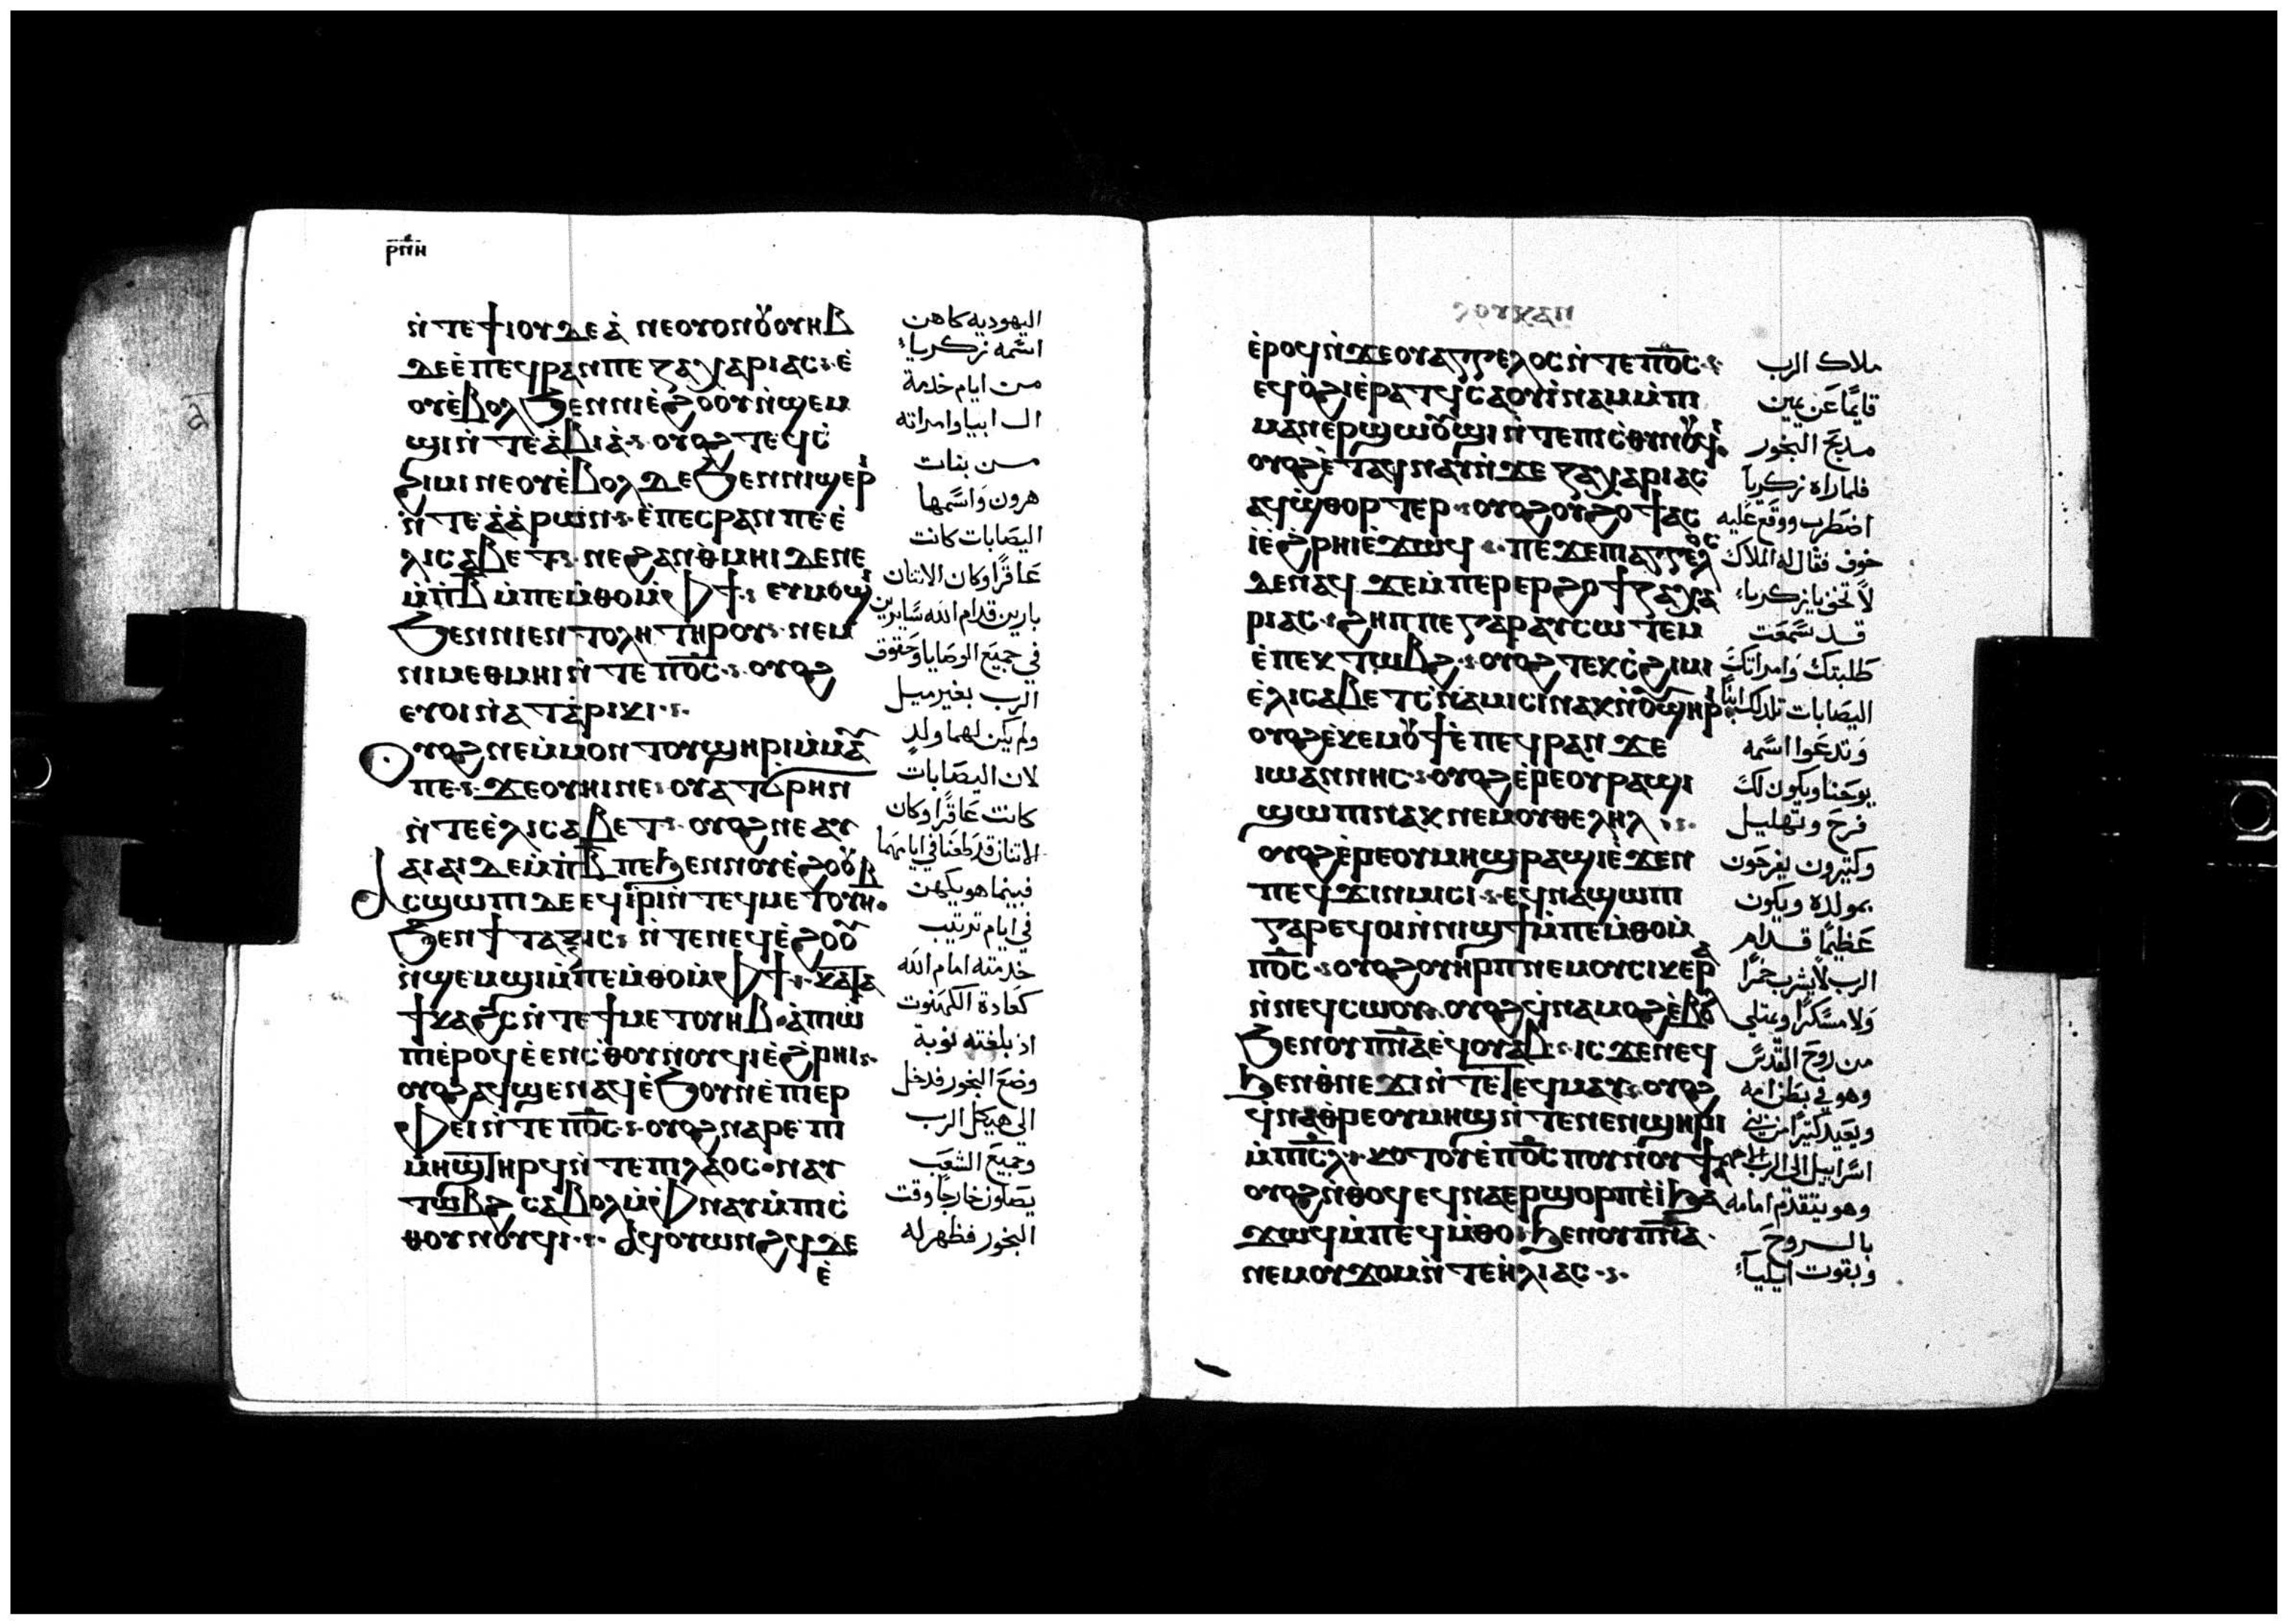 ⲣⲡⲏ
ⲛ̀ⲧⲉϯⲓⲟⲩⲇⲉⲁ̀ ⲛⲉⲟⲩⲟⲛⲟⲩⲟⲩⲏⲃ
ⲇⲉⲉ̀ⲡⲉϥⲣⲁⲛⲡⲉ ⲍⲁⲭⲁⲣⲓⲁⲥ ⲉ̀
ⲟⲩⲉ̀ⲃⲟⲗϧⲉⲛⲛⲓⲉ̀ϩⲟⲟⲩⲛ̀ϣⲉⲙ
ϣⲓⲛ̀ⲧⲉⲁ̀ⲃⲓⲁ̀ ⲟⲩⲟϩ ⲧⲉϥⲥ̀
ϩⲓⲙⲓ ⲛⲉⲟⲩⲉ̀ⲃⲟⲗ ⲇⲉϧⲉⲛⲛⲓϣⲉⲣⲓ
ⲛ̀ⲧⲉⲁ̀ⲁ̀ⲣⲱⲛ ⲉ̀ⲡⲉⲥⲣⲁⲛ ⲡⲉ ⲉ̀
ⲗⲓⲥⲁⲃⲉⲧ ⲛⲉϩⲁⲛⲑⲙⲏⲓ ⲇⲉⲡⲉ
ⲙ̀ⲡⲃ̄ ⲙ̀ⲡⲉⲙ̀ⲑⲟⲙ̀ⲫϯ ⲉⲩⲙⲟϣⲓ
ϧⲉⲛⲛⲓⲉⲛⲧⲟⲗⲏ ⲧⲏⲣⲟⲩ ⲛⲉⲙ
ⲛⲓⲙⲉⲑⲙⲏⲓ ⲛ̀ⲧⲉ ⲡⲟ̄ⲥ̄ ⲟⲩⲟϩ
ⲉⲩⲟⲓ ⲛ̀ⲁⲧⲁ̀ⲣⲓⲕⲓ
ⲟⲩⲟϩ ⲛⲉⲙ̀ⲙⲟⲛ ⲧⲟⲩϣⲏⲣⲓⲙ̀ⲙⲁⲩ
ⲡⲉ ϫⲉⲟⲩⲏⲓⲛⲉ ⲟⲩⲁⲧϭⲣⲏⲛ
ⲛ̀ⲧⲉⲉ̀ⲗⲓⲥⲁⲃⲉⲧ ⲟⲩⲟϩ ⲛⲉⲁⲩ
ⲁⲓⲁⲓ ⲇⲉⲙ̀ⲡⲃ̄ ⲡⲉϧⲉⲛⲛⲟⲩⲉ̀ϩⲟⲟⲩ
ⲁⲥϣⲱⲡⲓ ⲇⲉ ⲉϥⲓ̀ⲣⲓⲛ̀ⲧⲉϥⲙⲉⲧⲟⲩⲏⲃ
ϧⲉⲛϯⲧⲁⲝⲓⲥ ⲛ̀ⲧⲉⲛⲉϥⲉ̀ϩⲟⲟⲩ
ⲛ̀ϣⲉⲙϣⲓⲙ̀ⲡⲉⲙ̀ⲑⲟⲙ̀ⲫϯ ⲕⲁⲧⲁ
ϯⲕⲁϩⲥ ⲛ̀ⲧⲉϯⲙⲉⲧⲟⲩⲏⲃ ⲁ̀ⲡⲓⲱ̀
ⲡⲓⲉⲣⲟϥ ⲉ̀ⲉⲛⲥ̀ⲑⲟⲩⲛⲟⲩϥⲓⲉ̀ϩⲣⲏⲓ
ⲟⲩⲟϩ ⲁϥϣⲉⲛⲁϥ ⲉ̀ϧⲟⲩⲛⲉ̀ⲡⲓⲉⲣ
ⲫⲉⲓ ⲛ̀ⲧⲉ ⲡⲟ̄ⲥ̄ ⲟⲩⲟϩ ⲛⲁⲣⲉ ⲡⲓ
ⲙⲏϣ ⲧⲏⲣϥ ⲛ̀ⲧⲉⲡⲓⲗⲁⲟⲥ ⲛⲁⲩ
ⲧⲱⲃϩ ⲥⲁⲃⲟⲗ ⲙ̀ⲫⲛⲁⲩⲙ̀ⲡⲓⲥ̀
ⲑⲟⲩⲛⲟⲩϥⲓ ⲁϥⲟⲩⲱⲛϩϥ ⲇⲉ
ⲉ̀
اليهوديه كاهن
اسمه زكرياء
من ايام خدمة
ال ابيا وامراته
من بنات
هرون واسمها
اليصابات كانت
عاقرا وكان الاتنان
بارين قدام الله سايرين
في جميع الوصايا وحقوق
الرب بغير ميل
ولم يكن لهما ولد
لان اليصابات
كانت عاقرا وكان
الاتنان قد طعنا في ايامهما
فبينما هو يكهن
في ايام ترتيب
خدمته امام الله
كعادة الكهنوت
اذ بلغته نوبة
وضع البخور فدخل
الى هيكل الرب
وجميع الشعب
يصلون خارجا وقت
البخور فظهر له
ⲗⲟⲩⲕⲁⲛ
ⲉ̀ⲣⲟϥ ⲛ̀ϫⲉⲟⲩⲁⲅⲅⲉⲗⲟⲥ ⲛ̀ⲧⲉ ⲡⲟ̄ⲥ̄
ⲉϥⲟ̀ϩⲓⲉ̀ⲣⲁⲧϥ ⲥⲁⲟⲩⲓ̀ⲛⲁⲙ ⲙ̀ⲡⲓ
ⲙⲁⲛⲉⲣϣⲱⲟⲩϣⲓ ⲛ̀ⲧⲉⲡⲓⲥ̀ⲑⲟⲓⲛⲟⲩϥⲓ
ⲟⲩⲟϩ ⲉ̀ⲧⲁϥⲛⲁⲩ ⲛ̀ϫⲉ ⲍⲁⲭⲁⲣⲓⲁⲥ
ⲁϥϣ̀ⲑⲟⲣⲧⲉⲣ ⲟⲩⲟϩ ⲟⲩϩⲟϯ ⲁⲥ
ⲓ̀ⲉ̀ϩⲣⲏⲓ ⲉ̀ϫⲱϥ ⲡⲉϫⲉⲡⲓⲁⲅⲅⲉⲗⲟⲥ
ⲇⲉ ⲛⲁϥ ϫⲉⲙ̀ⲡⲉⲣⲉⲣϩⲟϯ ⲍⲁⲭⲁ
ⲣⲓⲁⲥ ϩⲏⲡⲡⲉ ⲅⲁⲣ ⲁⲩⲥⲱⲧⲉⲙ
ⲉ̀ⲡⲉⲕⲧⲱⲃϩ ⲟⲩⲟϩ ⲧⲉⲕⲥ̀ϩⲓⲙⲓ
ⲉ̀ⲗⲓⲥⲁⲃⲉⲧ ⲥ̀ⲛⲁⲙⲓⲥⲓ ⲛⲁⲕ ⲛ̀ⲟⲩϣⲏⲣⲓ
ⲟⲩⲟϩ ⲉ̀ⲕⲉⲙⲟⲩϯ ⲉ̀ⲡⲉϥⲣⲁⲛ ϫⲉ
ⲓⲱⲁⲛⲛⲏⲥ ⲟⲩⲟϩ ⲉ̀ⲣⲉⲟⲩⲣⲁϣⲓ
ϣⲱⲡⲓ ⲛⲁⲕ ⲛⲉⲙⲟⲩⲑⲉⲗⲏⲗ
ⲟⲩⲟϩ ⲉ̀ⲣⲉⲟⲩⲙⲏϣ ⲣⲁϣⲓ ⲉ̀ϫⲉⲛ
ⲡⲉϥϫⲓⲛⲙⲓⲥⲓ ⲉϥⲛⲁϣⲱⲡⲓ
ⲅⲁⲣ ⲉϥⲟⲓ ⲛ̀ⲛⲓϣϯ ⲙ̀ⲡⲉⲙ̀ⲑⲟⲙ̀
ⲡⲟ̄ⲥ̄ ⲟⲩⲟϩ ⲟⲩⲏⲣⲡ ⲛⲉⲙⲟⲩⲥⲓⲕⲉⲣⲁ
ⲛ̀ⲛⲉϥⲥⲱⲟⲩ ⲟⲩⲟϩ ϥ̀ⲛⲁⲙⲟϩ ⲉ̀ⲃⲟⲗ
ϧⲉⲛⲟⲩⲡ̄ⲛ̄ⲁ̄ ⲉϥⲟⲩⲁⲃ ⲓⲥϫⲉⲛ ⲉϥ
ϧⲉⲛⲑ̀ⲛⲉϫⲓ ⲛ̀ⲧⲉⲧⲉϥⲙⲁⲩ ⲟⲩⲟϩ
ϥ̀ⲛⲁⲑ̀ⲣⲉⲟⲩⲙⲏϣ ⲛ̀ⲧⲉⲛⲉⲛϣⲏⲣⲓ
ⲙ̀ⲡⲓⲥ̄ⲗ̄ ⲕⲟⲧⲟⲩ ⲉ̀ⲡⲟ̄ⲥ̄ ⲡⲟⲩⲛⲟⲩϯ
ⲟⲩⲟϩ ⲛ̀ⲑⲟϥ ⲉϥⲛⲁⲉⲣϣⲟⲣⲡ ⲉ̀ⲓ̀ϧⲁ
ϫⲱϥ ⲙ̀ⲡⲉϥⲙ̀ⲑⲟ ϧⲉⲛⲟⲩⲡ̄ⲛ̄ⲁ̄
ⲛⲉⲙⲟⲩϫⲟⲙ ⲛ̀ⲧⲉⲏ̀ⲗⲓⲁⲥ
ملاك الرب
قايما عن يمين
مدبح البخور
فلما راه زكريا
اضطرب ووقع عليه
خوف فقال له الملاك
لا تخف يا زكرياء
قد سمعت
طلبتك وامراتك
اليصابات تلد لك ابنا
وتدعوا اسمه
يوحنا ويكون لك
فرح وتهليل
وكتيرون يفرحون
بمولده ويكون
عظيما قدام
الرب لا يشرب خمرا
ولا مسكرا ويمتلي
من روح القدس
وهو في بطن امه
ويعيد كتيرا من بني
اسراييل الى الرب الاههم
وهو يتقدم امامه
بالروح
وبقوت ايلياء